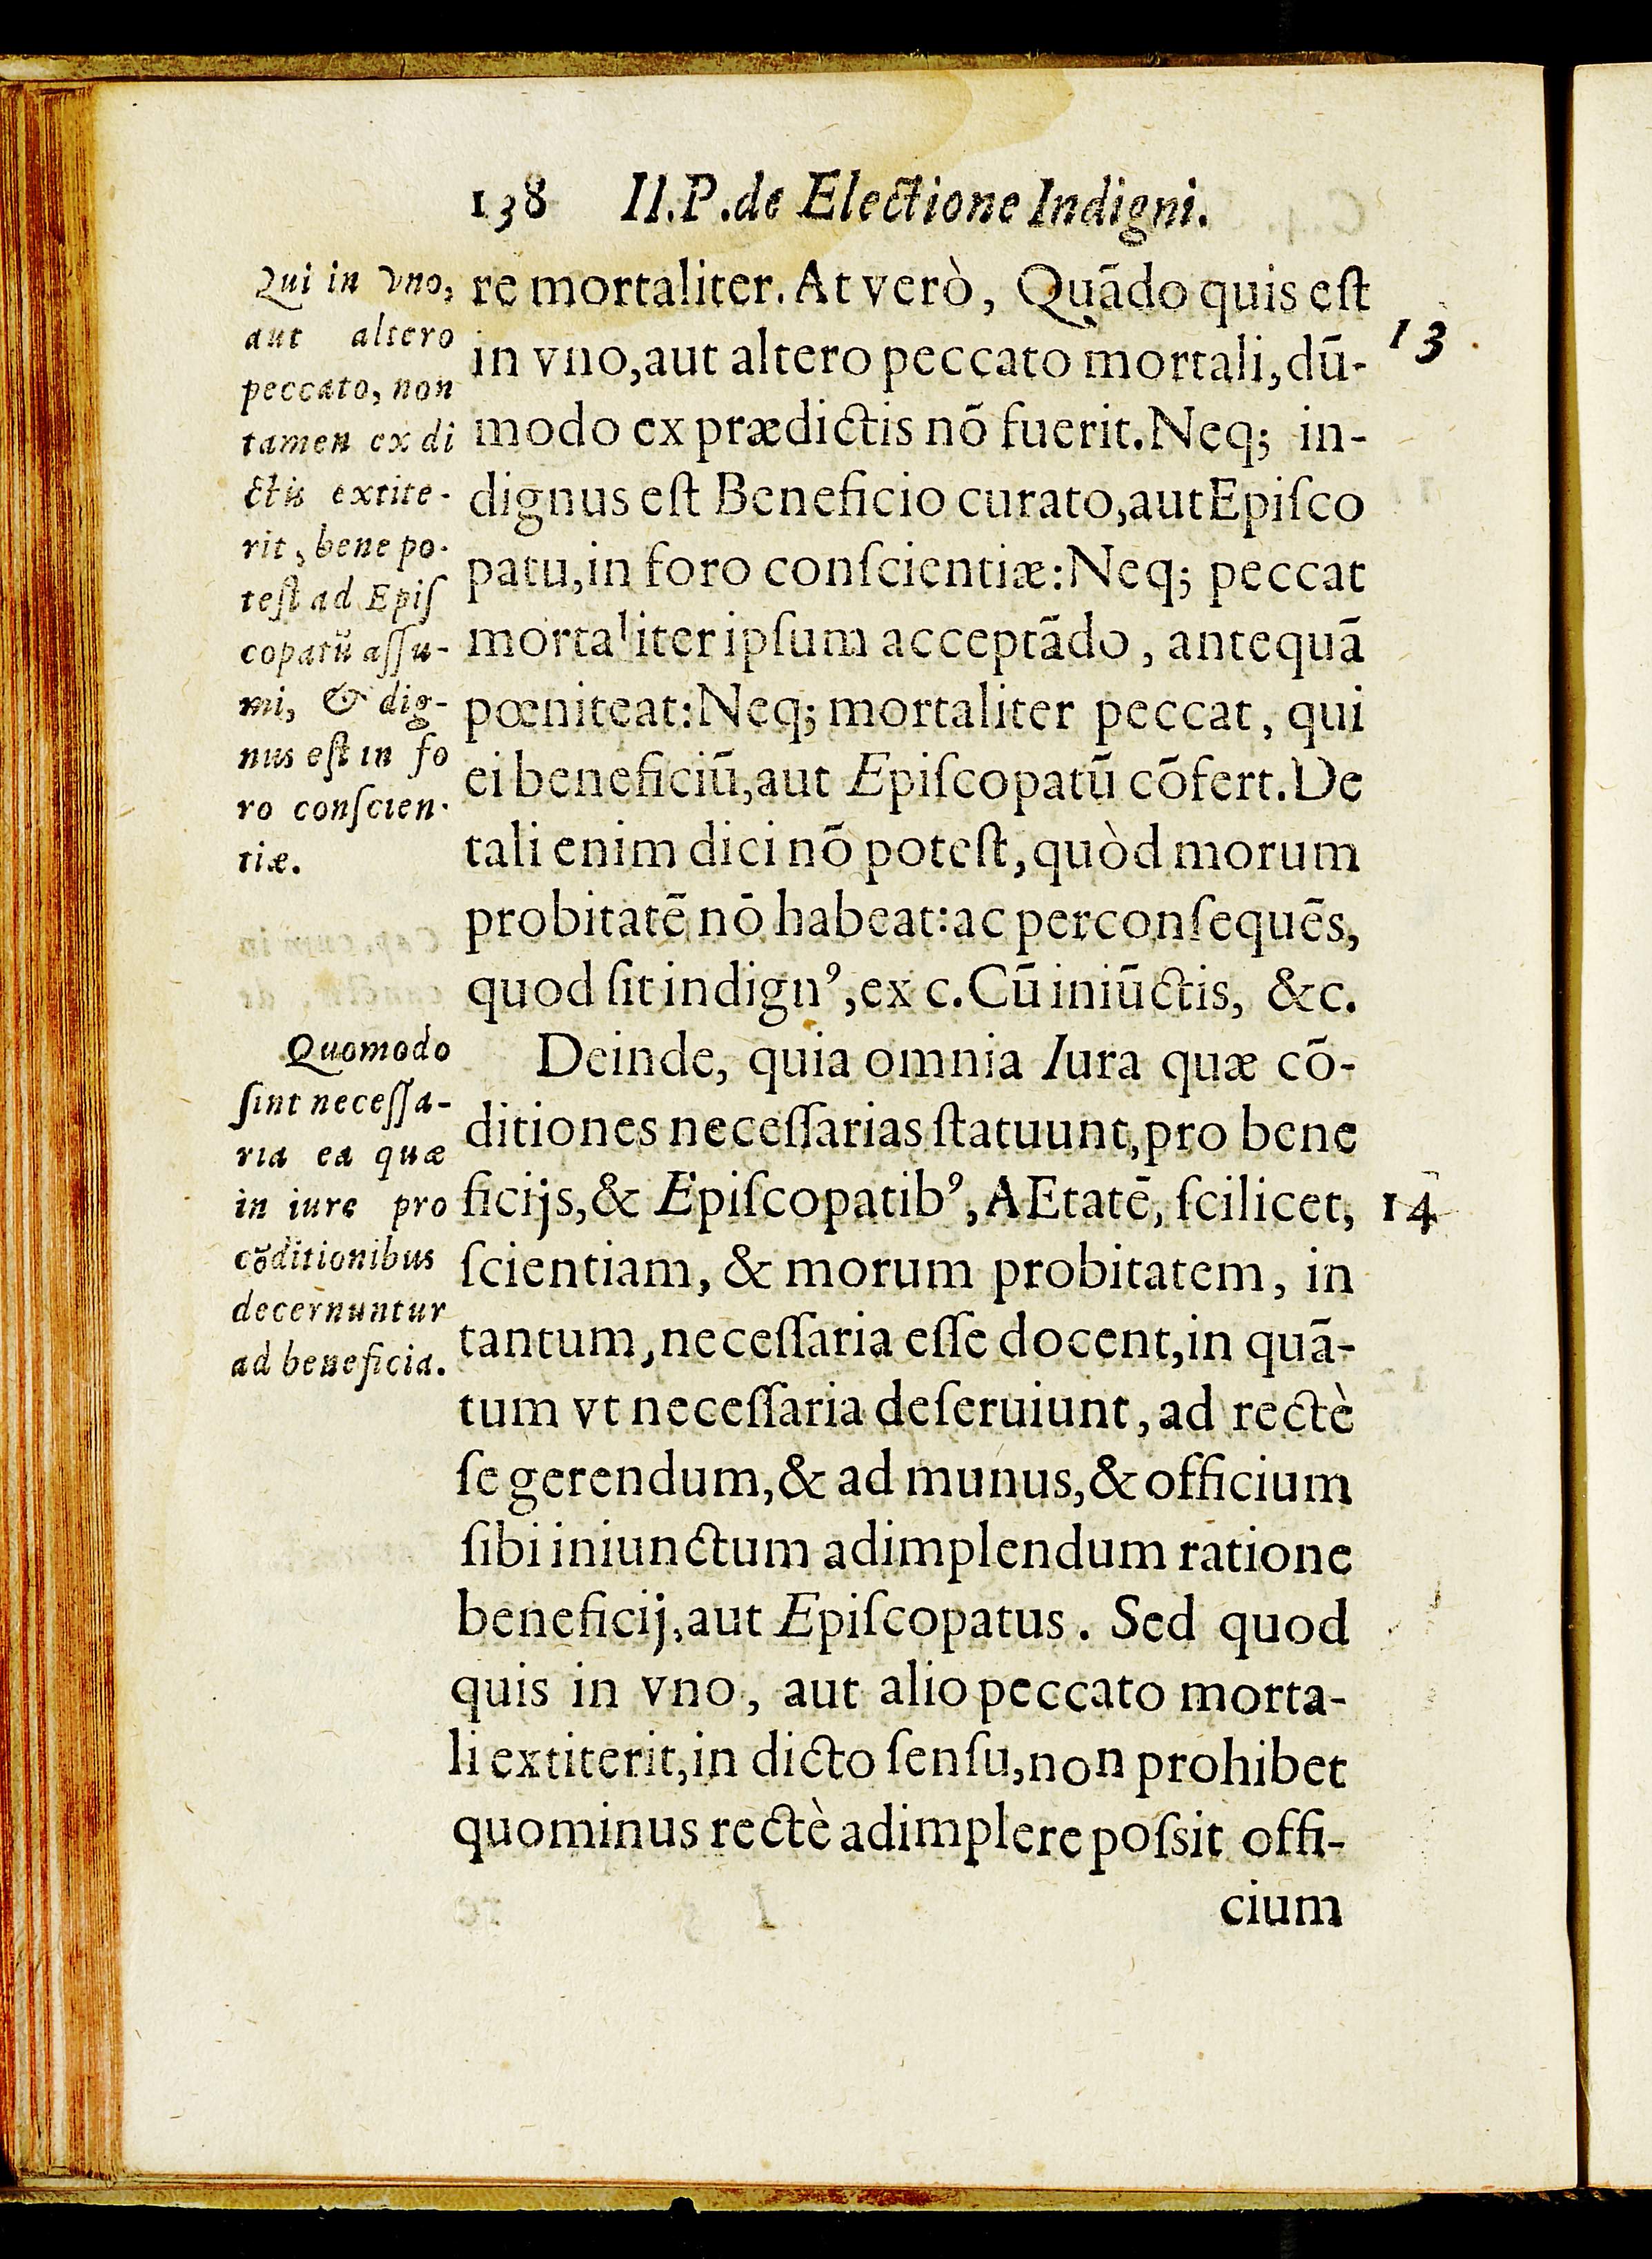 138 II.P.de Electione Indigni.
Qui in vno,
aut altero
peccato, non
tamen ex di
ctis extite-
rit, bene po-
teſt ad Epiſ
copatū aſſu-
mi, & dig-
nus eſt in fo
ro conſcien-
tiæ.
Quomodo
ſint neceſſa-
ria ea quæ
in iure pro
cōditionibus
decernuntur
ad beneficia.
re mortaliter. At verò, Quādo quis eſt
in vno,aut altero peccato mortali,dū-
modo ex prædictis nō fuerit. Neq; in-
dignus eſt Beneficio curato,aut Epiſco
patu,in foro conſcientiæ: Neq; peccat
mortaliter ipſum acceptādo, antequā
pœniteat: Neq; mortaliter peccat, qui
ei beneficiū,aut Epiſcopatū cōfert. De
tali enim dici nō poteſt,quòd morum
probitatē nō habeat:ac perconſequēs,
quod ſit indignꝰ,ex c.Cū iniūctis, &c.
Deinde, quia omnia Iura quæ cō-
ditiones neceſſarias ſtatuunt,pro bene
ficijs,& Epiſcopatibꝰ,AEtatē, ſcilicet,
ſcientiam, & morum probitatem, in
tantum,neceſſaria eſſe docent,in quā-
tum vt neceſſaria deſeruiunt, ad rectè
ſe gerendum,& ad munus,& officium
ſibi iniunctum adimplendum ratione
beneficij,aut Epiſcopatus. Sed quod
quis in vno, aut alio peccato morta-
li extiterit,in dicto ſenſu,non prohibet
quominus rectè adimplere poſsit offi-
cium
13
14